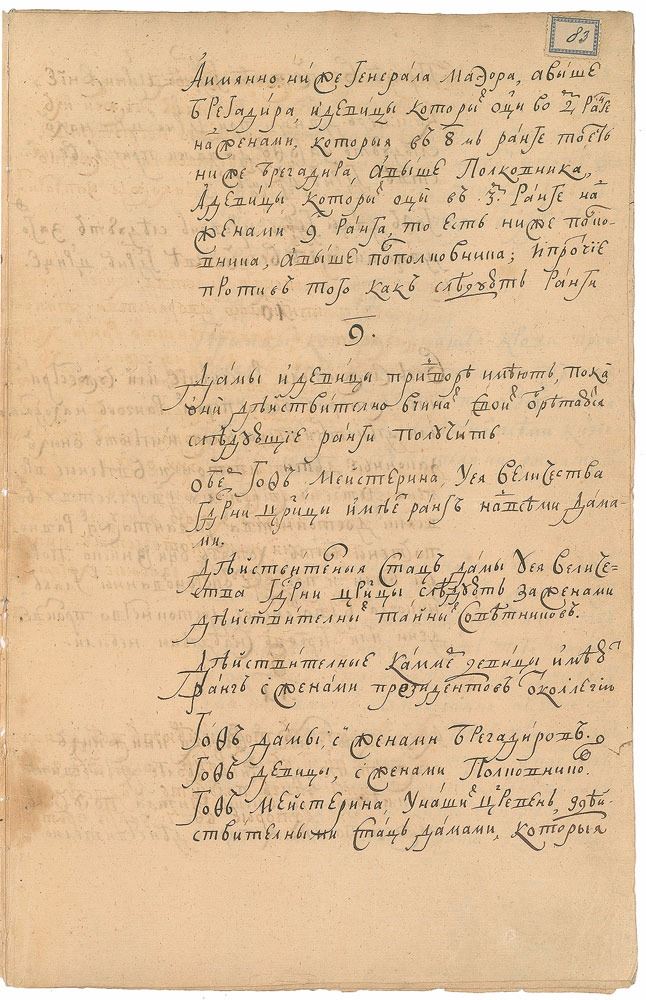 83
Аимянно ниже генерала маэора, авыше
брегадира, идевицы которых отцы во 2м ранге
надженами, которыя въ 8мь ранге тоесть
ниже брегадира, авыше Полковника,
Адевицы которых отцы въ 3м ранге над
женами 9 ранга, то есть ниже полко-
вника, авыше подполковника; ипротчие
противъ того какъ следуютъ ранги
9.
Дамы идевицы придворе имеютъ, пока
они действително вчинах своих обретаются
следующие ранги получить
обер гофъ мейстерина, Уея величества
Гдрни црицы имеет рангъ надвсеми дама-
ми.
Действителныя стацъ дамы Уея величе-
ства Гдрни црицы следуютъ заженами
действителных таиных советниковъ.
Действителные каммер девицы имеют
рангъ сженами президентовъ от коллегии
Гофъ дамы, сженами брегадировъ.
Гофъ девицы, сженами Полковников.
Гофъ мейстерина, Унаших црвенъ, здей-
ствителными стацъ дамами, которыя